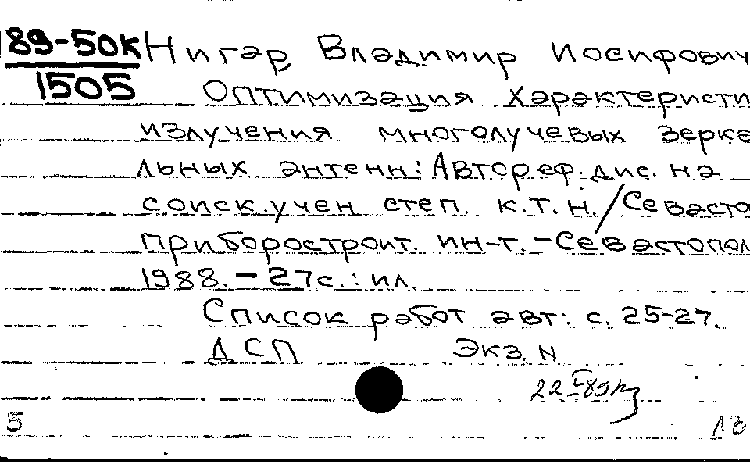 89-50к Нигер, Владимир Иосифович
1505 Оптимизация характеристи
излучения многолучевых зерка
льных антенн: Автореф. дис. на
соиск. учен степ к.т.н./Севасто
приборостроит. ин-т.-Севастопол
1988.-27с.: ил.
Список работ авт: с. 25-27.
ДСП Экз. N
5